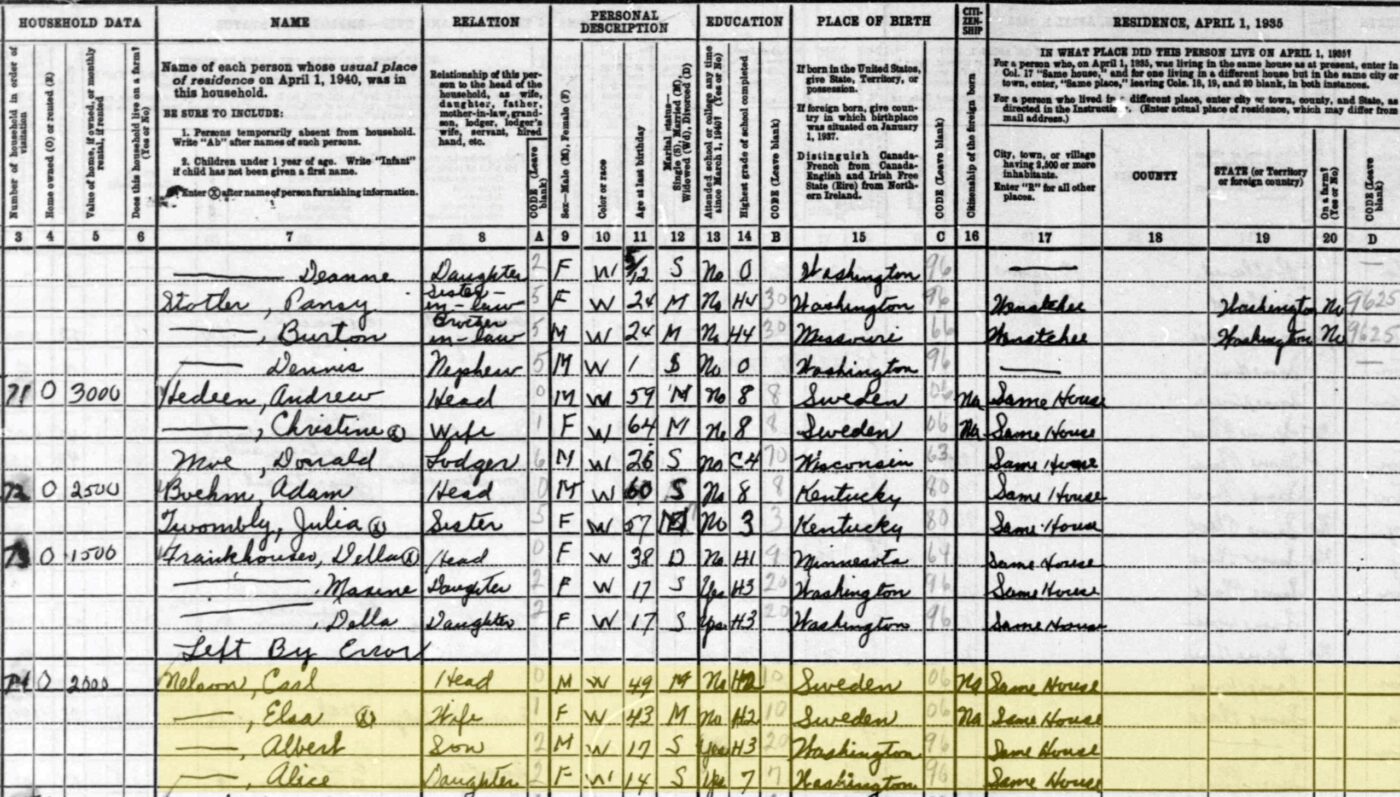 HOUSEHOLD DATA NAME RELATION PERSONAL DESCRIPTION EDUCATION PLACE OF BIRTH CITI-ZEN-SHIP RESIDENCE, APRIL 1, 1935
Number of household in order of visitation
Home owned (O) or rented (R)
Value of home, if owned, or monthly rental, if rented
Does this household live on a farm? (Yes or No)
Name of each person whose usual place of residence on April 1, 1940, was in this household.
BE SURE TO INCLUDE:
1. Persons temporarily absent from household. Write "Ab" after names of such persons.
2. Children under 1 year of age. Write "Infant" if child has not been given a first name.
Enter Ⓧ after name of person furnishing information.
Relationship of this person to the head of the household, as wife, daughter, father, mother-in-law, grandson, lodger, lodger's wife, servant, hired hand, etc.
CODE (Leave blank)
Sex—Male (M), Female (F)
Color or race
Age at last birthday
Marital status—Single (S), Married (M), Widowed (Wd), Divorced (D)
Attended school or college any time since March 1, 1940? (Yes or No)
Highest grade of school completed
CODE (Leave blank)
If born in the United States, give State, Territory, or possession.
If foreign born, give country in which birthplace was situated on January 1, 1937.
Distinguish Canada-French from Canada-English and Irish Free State (Eire) from Northern Ireland.
CODE (Leave blank)
Citizenship of the foreign born
IN WHAT PLACE DID THIS PERSON LIVE ON APRIL 1, 1935?
For a person who, on April 1, 1935, was living in the same house as at present, enter in Col. 17 "Same house," and for one living in a different house but in the same city or town, enter, "Same place," leaving Cols. 18, 19, and 20 blank, in both instances.
For a person who lived in a different place, enter city or town, county, and State, as directed in the Instructions. (Enter actual place of residence, which may differ from mail address.)
City, town, or village having 2,500 or more inhabitants.
Enter "R" for all other places.
COUNTY
STATE (or Territory or foreign country)
On a farm? (Yes or No)
CODE (Leave blank)
3 4 5 6 7 8 A 9 10 11 12 13 14 B 15 C 16 17 18 19 20 D
— Deanne Daughter 2 F W 5/12 S No 0 Washington 96 —
Stotler, Pansy Sister-in-law 5 F W 24 M No H4 30 Washington 96 Wenatchee Washington No 9625
—, Burton Brother in-law 5 M W 24 M No H4 30 Missouri 66 Wenatchee Washington No 9625
— Dennis Nephew 5 M W 1 S No 0 Washington 96 —
71 O 3000 Hedeen, Andrew Head 0 M W 59 M No 8 8 Sweden 06 Na Same House
—, Christine Ⓧ Wife 1 F W 64 M No 8 8 Sweden 06 Na Same House
Moe, Donald Lodger 6 M W 26 S No C4 70 Wisconsin 63 Same House
72 O 2500 Boehm, Adam Head 0 M W 60 S No 8 8 Kentucky 80 Same House
Twombly, Julia Ⓧ Sister 5 F W 57 No 3 3 Kentucky 80 Same House
73 O 1500 Frankhouser, Della Ⓧ Head 0 F W 38 D No H1 9 Minnesota 64 Same House
—, Maxine Daughter 2 F W 17 S Yes H3 20 Washington 96 Same House
—, Della Daughter 2 F W 17 S Yes H3 20 Washington 96 Same House
Left By Error
74 O 2000 Nelson, Carl Head 0 M W 49 M No H2 10 Sweden 06 Na Same House
—, Elsa Ⓧ Wife 1 F W 43 M No H2 10 Sweden 06 Na Same House
—, Albert Son 2 M W 17 S Yes H3 20 Washington 96 Same House
—, Alice Daughter 2 F W 14 S Yes 7 7 Washington 96 Same House